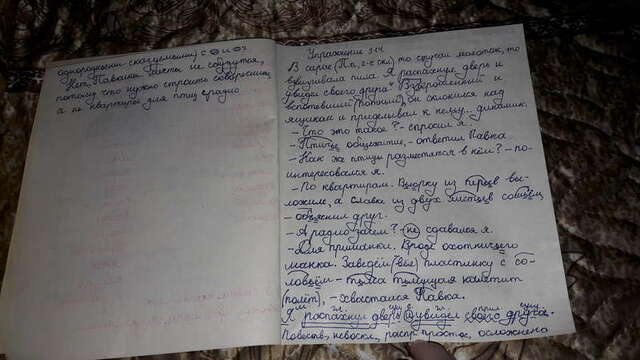 однородными сказуемыми) с О и О?
Нет. Павкины мечты не сбудутся,
потому что нужно строить скворечник,
а не квартиры для птиц с радио
Упражнение 314.
В сарае (П.п., 2-е скл) то стучал молоток, то
взвизгивала пила. Я распахнул дверь и
увидел своего друга. Взъерошенный и
вспотевший (потный), он склонился над
ящиком и приделывал к нему... динамик.
- Что это такое? - спросил я.
- Птичье общежитие, - ответил Павка.
- Как же птицы разместятся в нём? - по-
интересовался я.
- По квартирам. Вьюрку из перьев вы-
ложим, а славке из двух листьев сошьём,
- объяснил друг.
- А радио зачем? - не сдавался я.
- Для приманки. Вроде охотничьего
манка. Заведём (вы) пластинку с со-
ловьём - тьма тьмущая налетит
(полёт), - хвастался Павка.
Я распахнул дверь и увидел своего друга.
Повеств, невоскл, распр простое, осложнено